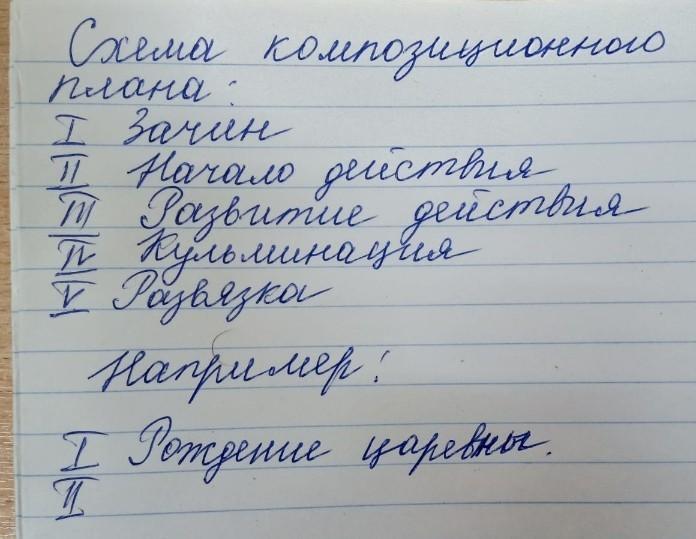 Схема композиционного
плана:
I Зачин
II Начало действия
III Развитие действия
IV Кульминация
V Развязка
Например:
I Рождение царевны.
II